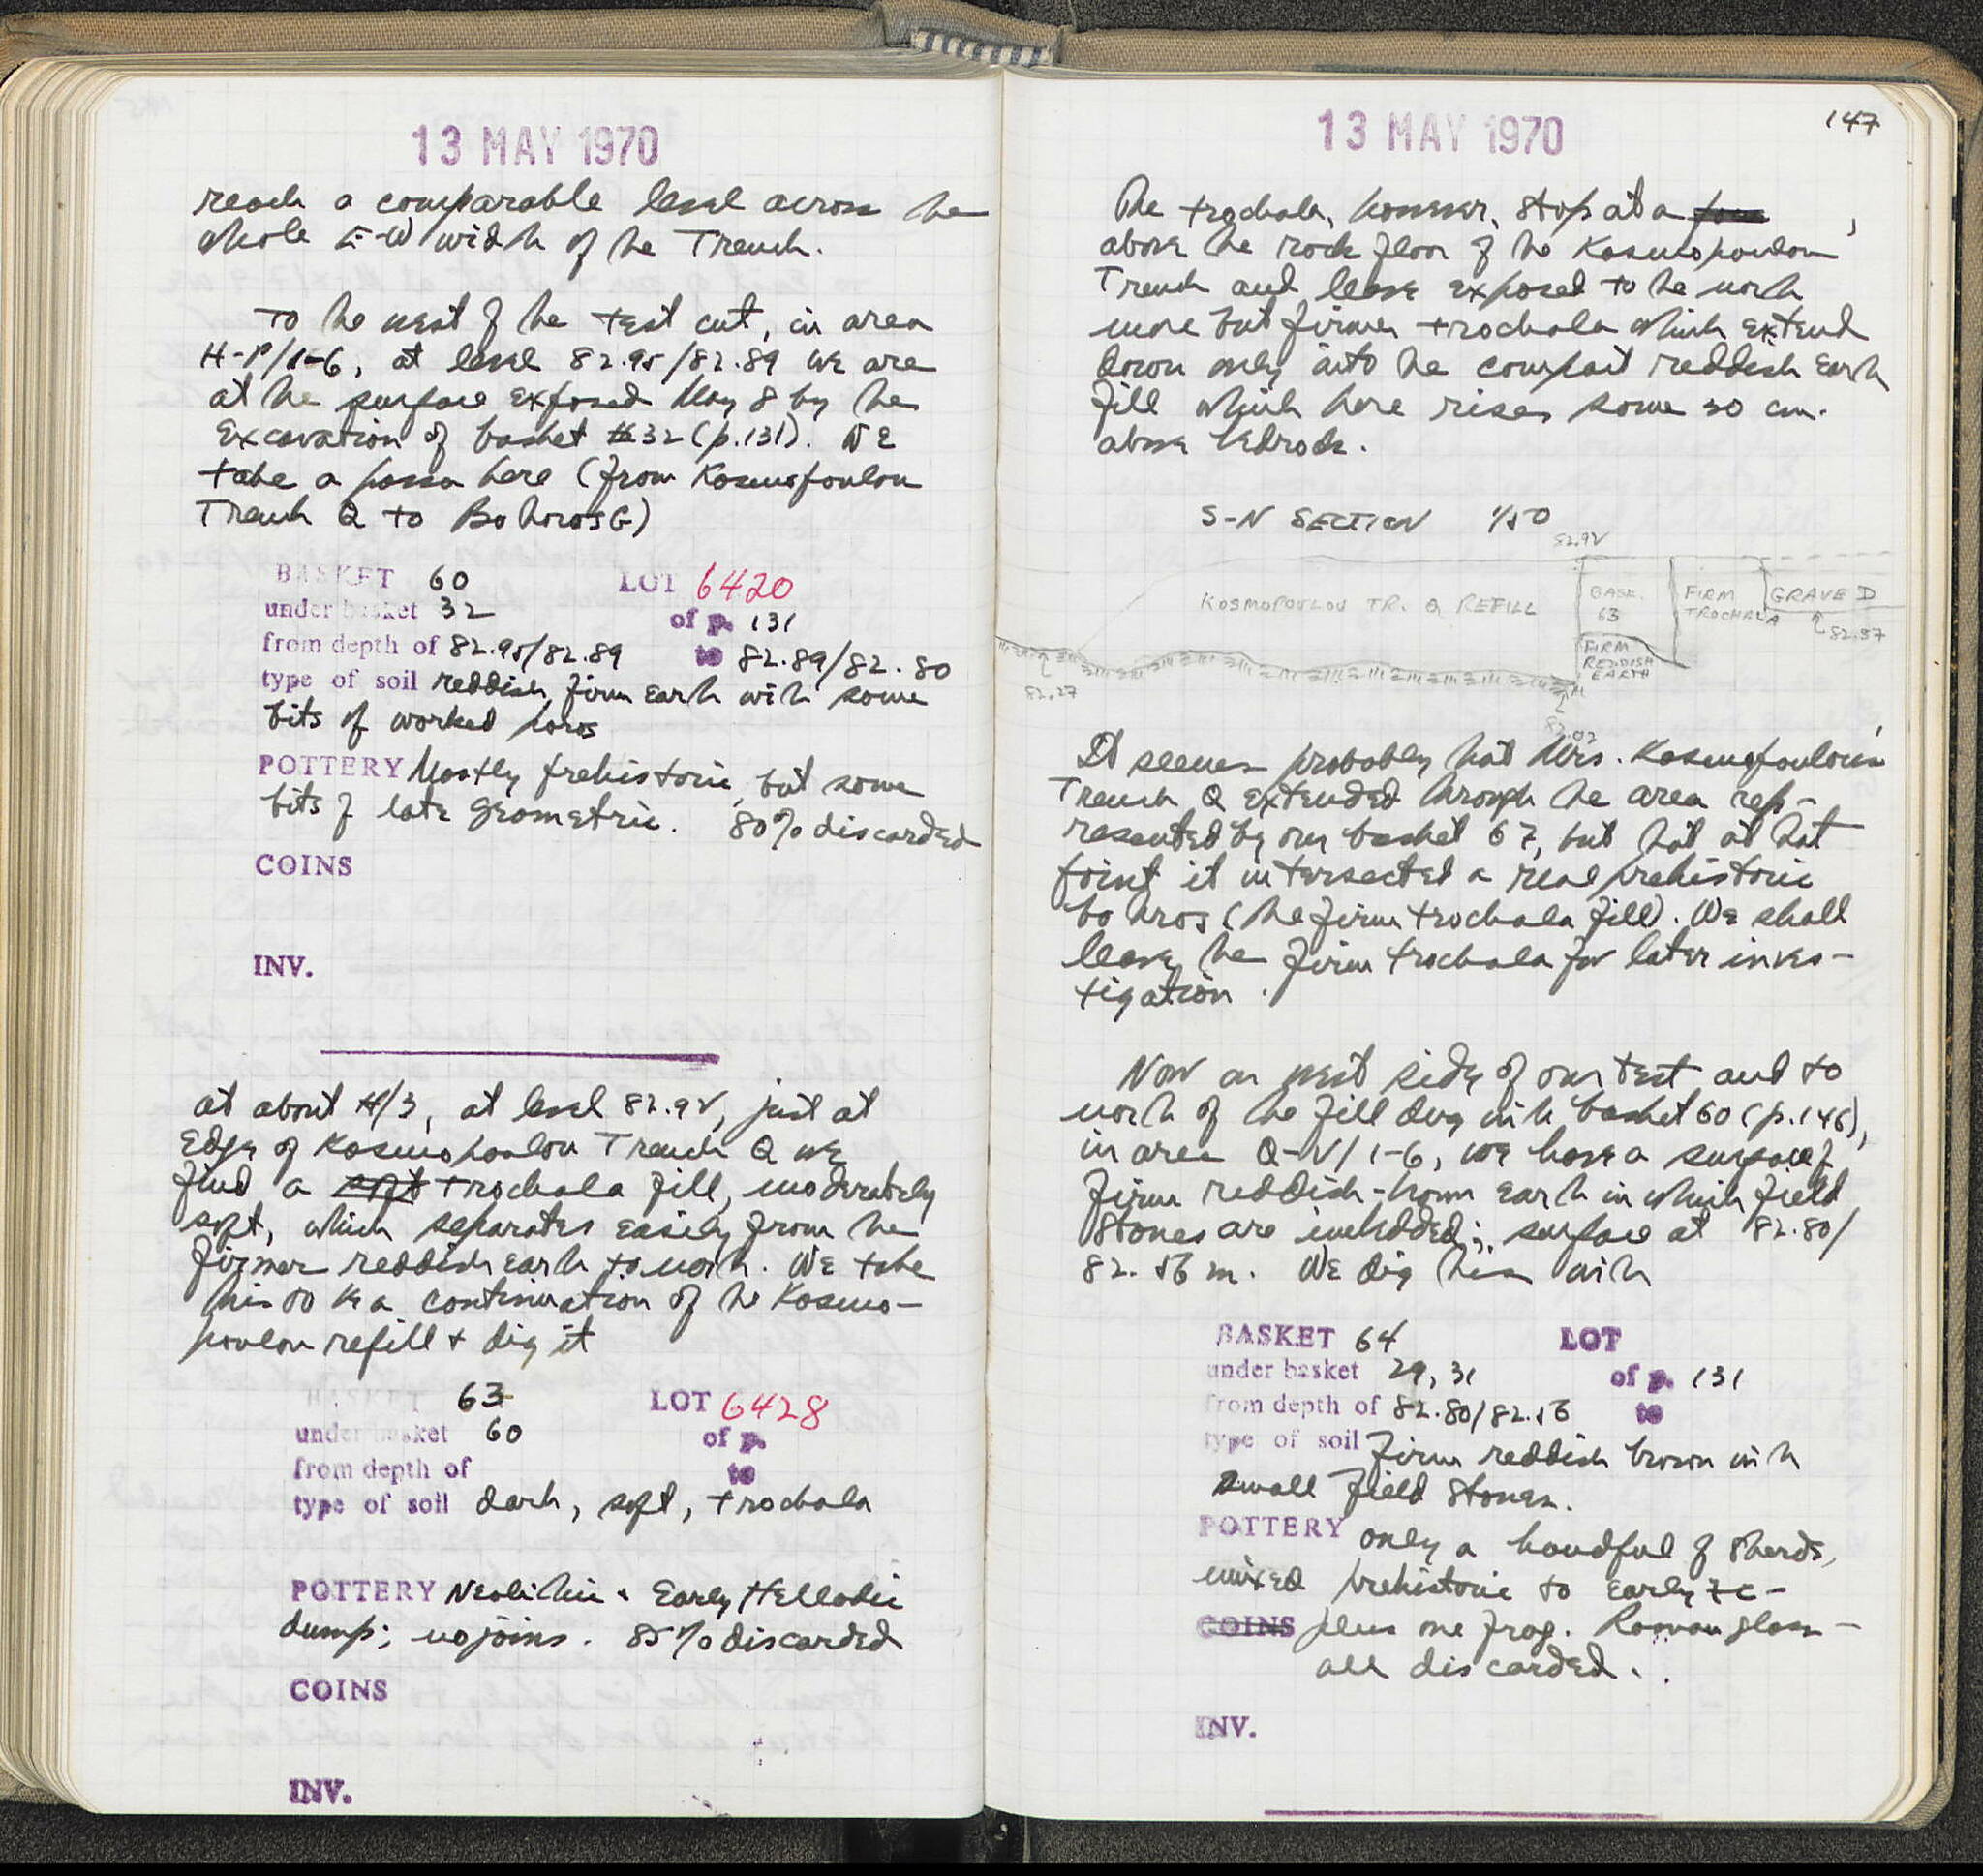 13 MAY 1970
reach a comparable level across the
whole E-W width of the Trench.
To the west of the test cut, in area
H-P/1-6, at level 82.95/82.89 we are
at the surface exposed May 8 by the
Excavation of basket 32 (p.131). We
take a passa here (from Kosmopoulou
Trench Q to Bothros G)
BASKET 60 LOT 6420
under basket 32 of p. 131
from depth of 82.95/82.89 to 82.89/82.80
type of soil reddish, firm Earth with some
bits of worked poros
POTTERY Mostly prehistoric, but some
bits of late Geometric. 80% discarded
COINS
INV.
at about H/3, at level 82.92, just at
Edge of Kosmopoulou Trench Q we
find a soft trochala fill, moderately
soft, which separates easily from the
firmer reddish earth to north. We take
this to be a continuation of the Kosmo-
poulou refill + dig it
BASKET 63 LOT 6428
under basket 60 of p.
from depth of to
type of soil dark, soft, trochala
POTTERY Neolithic + Early Helladic
dump; no joins. 85% discarded
COINS
INV.
13 MAY 1970
147
The trochala, however, stops at a
above the rock floor of the Kosmopoulou
Trench and leave exposed to the north
more but firmer trochala which extend
down only into the compact reddish Earth
fill which here rises some 30 cm.
above bedrock.
S-N SECTION 1/50
82.92
KOSMOPOULOU TR. Q REFILL
BASK. 63
FIRM TROCHALA
GRAVE D
82.57
FIRM REDDISH EARTH
82.27
82.02
It seems probably that Mrs. Kosmopoulou's
Trench Q extended through the area rep-
resented by our basket 63, but that at that
point it intersected a real prehistoric
bothros (the firm trochala fill). We shall
leave the firm trochala for later inves-
tigation.
Now on west side of our test and to
north of the fill dug with basket 60 (p.146),
in area Q-V/1-6, we have a surface of
firm reddish-brown earth in which field
stones are imbedded; surface at 82.80/
82.56 m. We dig this with
BASKET 64 LOT
under basket 29, 31 of p. 131
from depth of 82.80/82.56 to
type of soil firm reddish brown with
small field stones.
POTTERY only a handful of sherds,
mixed prehistoric to early 7 c -
COINS plus one frag. Roman glass -
all discarded.
INV.